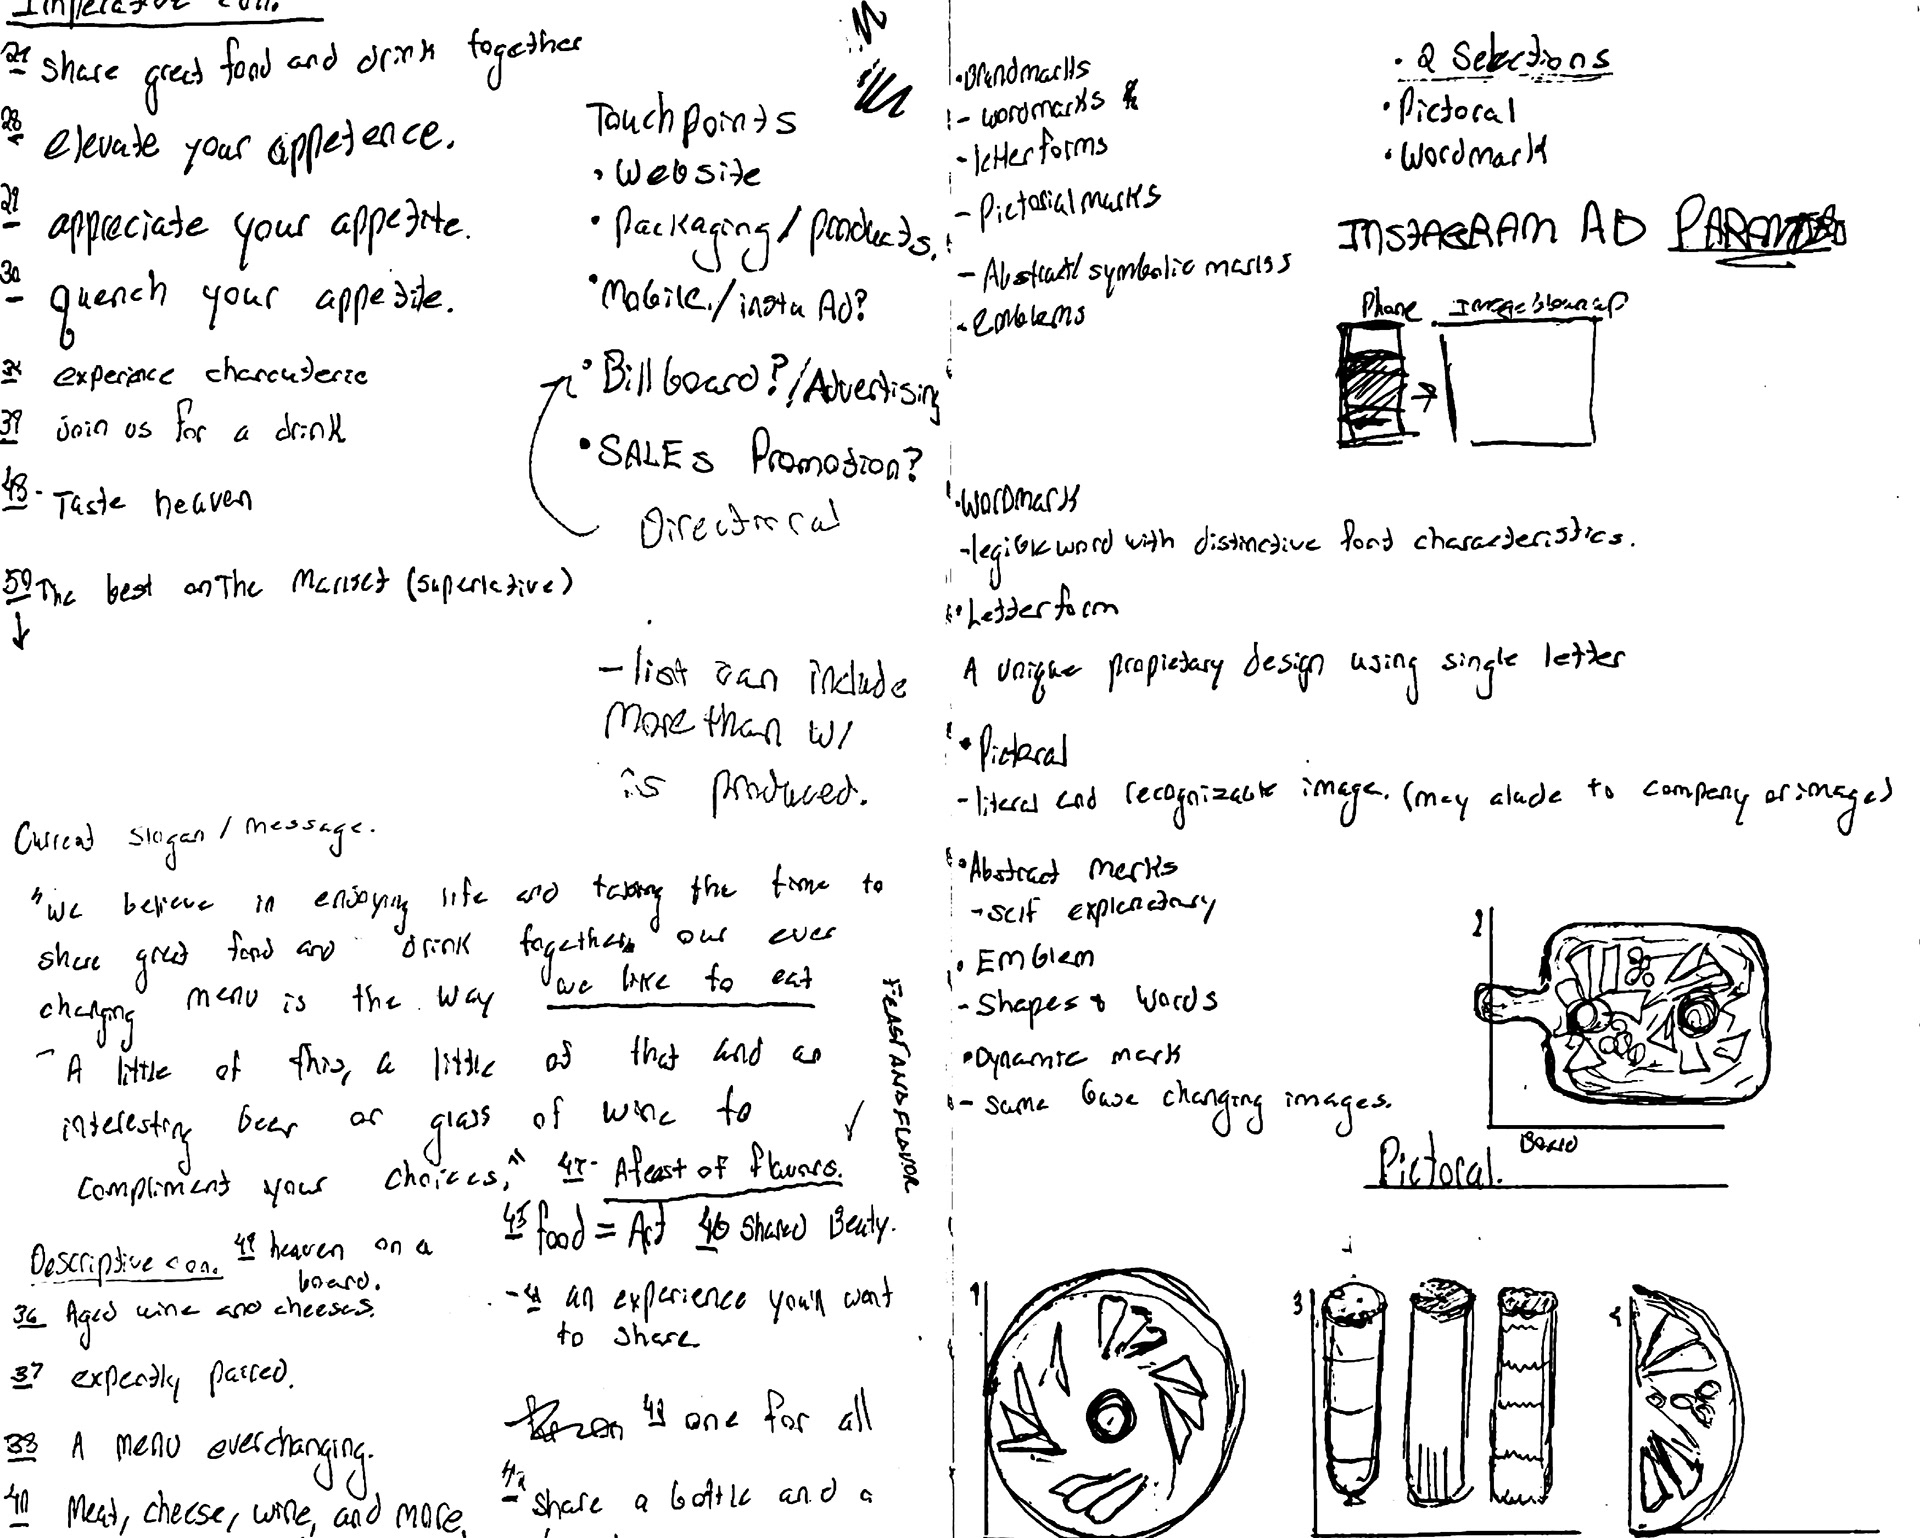 Imperative con.
share great food and drink together
28 elevate your appetence.
29 appreciate your appetite.
30 quench your appetite.
experience charcuterie
39 Join us for a drink
48- Taste heaven
50 The best on The Market (superlative)
Touchpoints
• Website
• Packaging / products.
• Mobile / insta Ad?
• Billboard? / Advertising
• SALES Promotion?
Directional
- list can include
More than w/
is produced.
Current slogan / message.
"We believe in enjoying life and taking the time to
share great food and drink together, our ever
changing menu is the way we like to eat
- A little of this, a little of that and an
interesting beer or glass of wine to
compliment your choices."
FEAST AND FLAVOR
A feast of flavors.
45 food = Art 46 Shared Beauty.
Descriptive con. 49 heaven on a
board.
36 Aged wine and cheeses.
37 expertly paired.
38 A menu everchanging.
40 Meat, cheese, wine, and more.
an experience you'll want
to share.
43 one for all
share a bottle and a
• Brandmarks
- wordmarks &
- letterforms
- Pictorial marks
- Abstract/symbolic marks
- Emblems
• 2 Selections
• Pictoral
• Wordmark
INSTAGRAM AD
Phone Image blown up
• Wordmark
- legible word with distinctive font characteristics.
• Letterform
A unique propietary design using single letter
• Pictoral
- literal and recognizable image. (may alude to company or image)
• Abstract marks
- self explanatory
• Emblem
- Shapes & words
• Dynamic mark
- same base changing images.
2
Board
Pictoral.
1
3
4